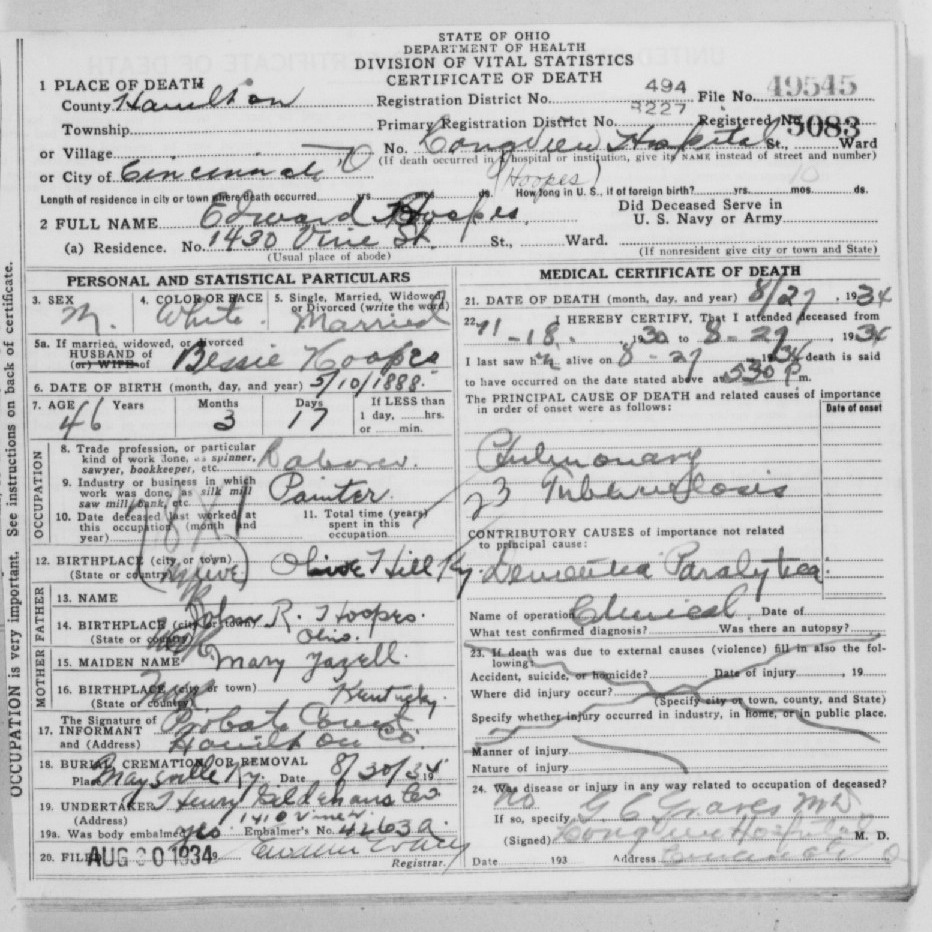 STATE OF OHIO
DEPARTMENT OF HEALTH
DIVISION OF VITAL STATISTICS
CERTIFICATE OF DEATH
1 PLACE OF DEATH
County Hamilton
Registration District No. 494 File No. 49545
Township
Primary Registration District No. 8227 Registered No. 5083
or Village
No. Longview Hospital St., Ward
(If death occurred in a hospital or institution, give its NAME instead of street and number)
or City of Cincinnati, O
(Hoopes)
Length of residence in city or town where death occurred yrs. ds. How long in U. S., if of foreign birth? yrs. mos. ds.
2 FULL NAME Edward Hoopes.
Did Deceased Serve in
U. S. Navy or Army
(a) Residence. No. 1430 Vine St. St., Ward.
(Usual place of abode) (If nonresident give city or town and State)
PERSONAL AND STATISTICAL PARTICULARS
3. SEX M.
4. COLOR OR RACE White.
5. Single, Married, Widowed, or Divorced (write the word) Married
5a. If married, widowed, or divorced
HUSBAND of
(or) WIFE of Bessie Hoopes
6. DATE OF BIRTH (month, day, and year) 5/10/1888.
7. AGE 46 Years 3 Months 17 Days If LESS than
1 day, hrs.
or min.
OCCUPATION
8. Trade profession, or particular
kind of work done, as spinner,
sawyer, bookkeeper, etc. Laborer.
9. Industry or business in which
work was done, as silk mill
saw mill, bank, etc. Painter.
10. Date deceased last worked at
this occupation (month and
year)
11. Total time (years)
spent in this
occupation
12. BIRTHPLACE (city or town)
(State or country) Olive Hill Ky.
FATHER
13. NAME John R. Hoopes.
14. BIRTHPLACE (city or town)
(State or country) Ohio.
MOTHER
15. MAIDEN NAME Mary Yazell.
16. BIRTHPLACE (city or town)
(State or country) Kentucky
17. The Signature of
INFORMANT Probate Court
and (Address) Hamilton Co.
18. BURIAL, CREMATION OR REMOVAL
Place Maysville Ky. Date 8/30/34 19
19. UNDERTAKER Henry
(Address) 1410 Vine
19a. Was body embalmed yes Embalmer's No. 4263a.
20. FILED AUG 30 1934
Registrar.
MEDICAL CERTIFICATE OF DEATH
21. DATE OF DEATH (month, day, and year) 8/27, 1934
22. I HEREBY CERTIFY, That I attended deceased from
11-18., 1930 to 8-27, 1934
I last saw him alive on 8-27 1934 death is said
to have occurred on the date stated above at 5:30 P. m.
The PRINCIPAL CAUSE OF DEATH and related causes of importance
in order of onset were as follows:
Date of onset
Pulmonary
23 Tuberculosis
CONTRIBUTORY CAUSES of importance not related
to principal cause:
Dementia Paralytica.
Name of operation Date of
What test confirmed diagnosis? Clinical Was there an autopsy?
23. If death was due to external causes (violence) fill in also the fol-
lowing:
Accident, suicide, or homicide? Date of injury , 19
Where did injury occur?
(Specify city or town, county, and State)
Specify whether injury occurred in industry, in home, or in public place.
Manner of injury
Nature of injury
24. Was disease or injury in any way related to occupation of deceased?
No
If so, specify
(Signed) G C Graves MD M. D.
Longview Hospital
Date 193 Address Cincinnati O
OCCUPATION is very important. See instructions on back of certificate.